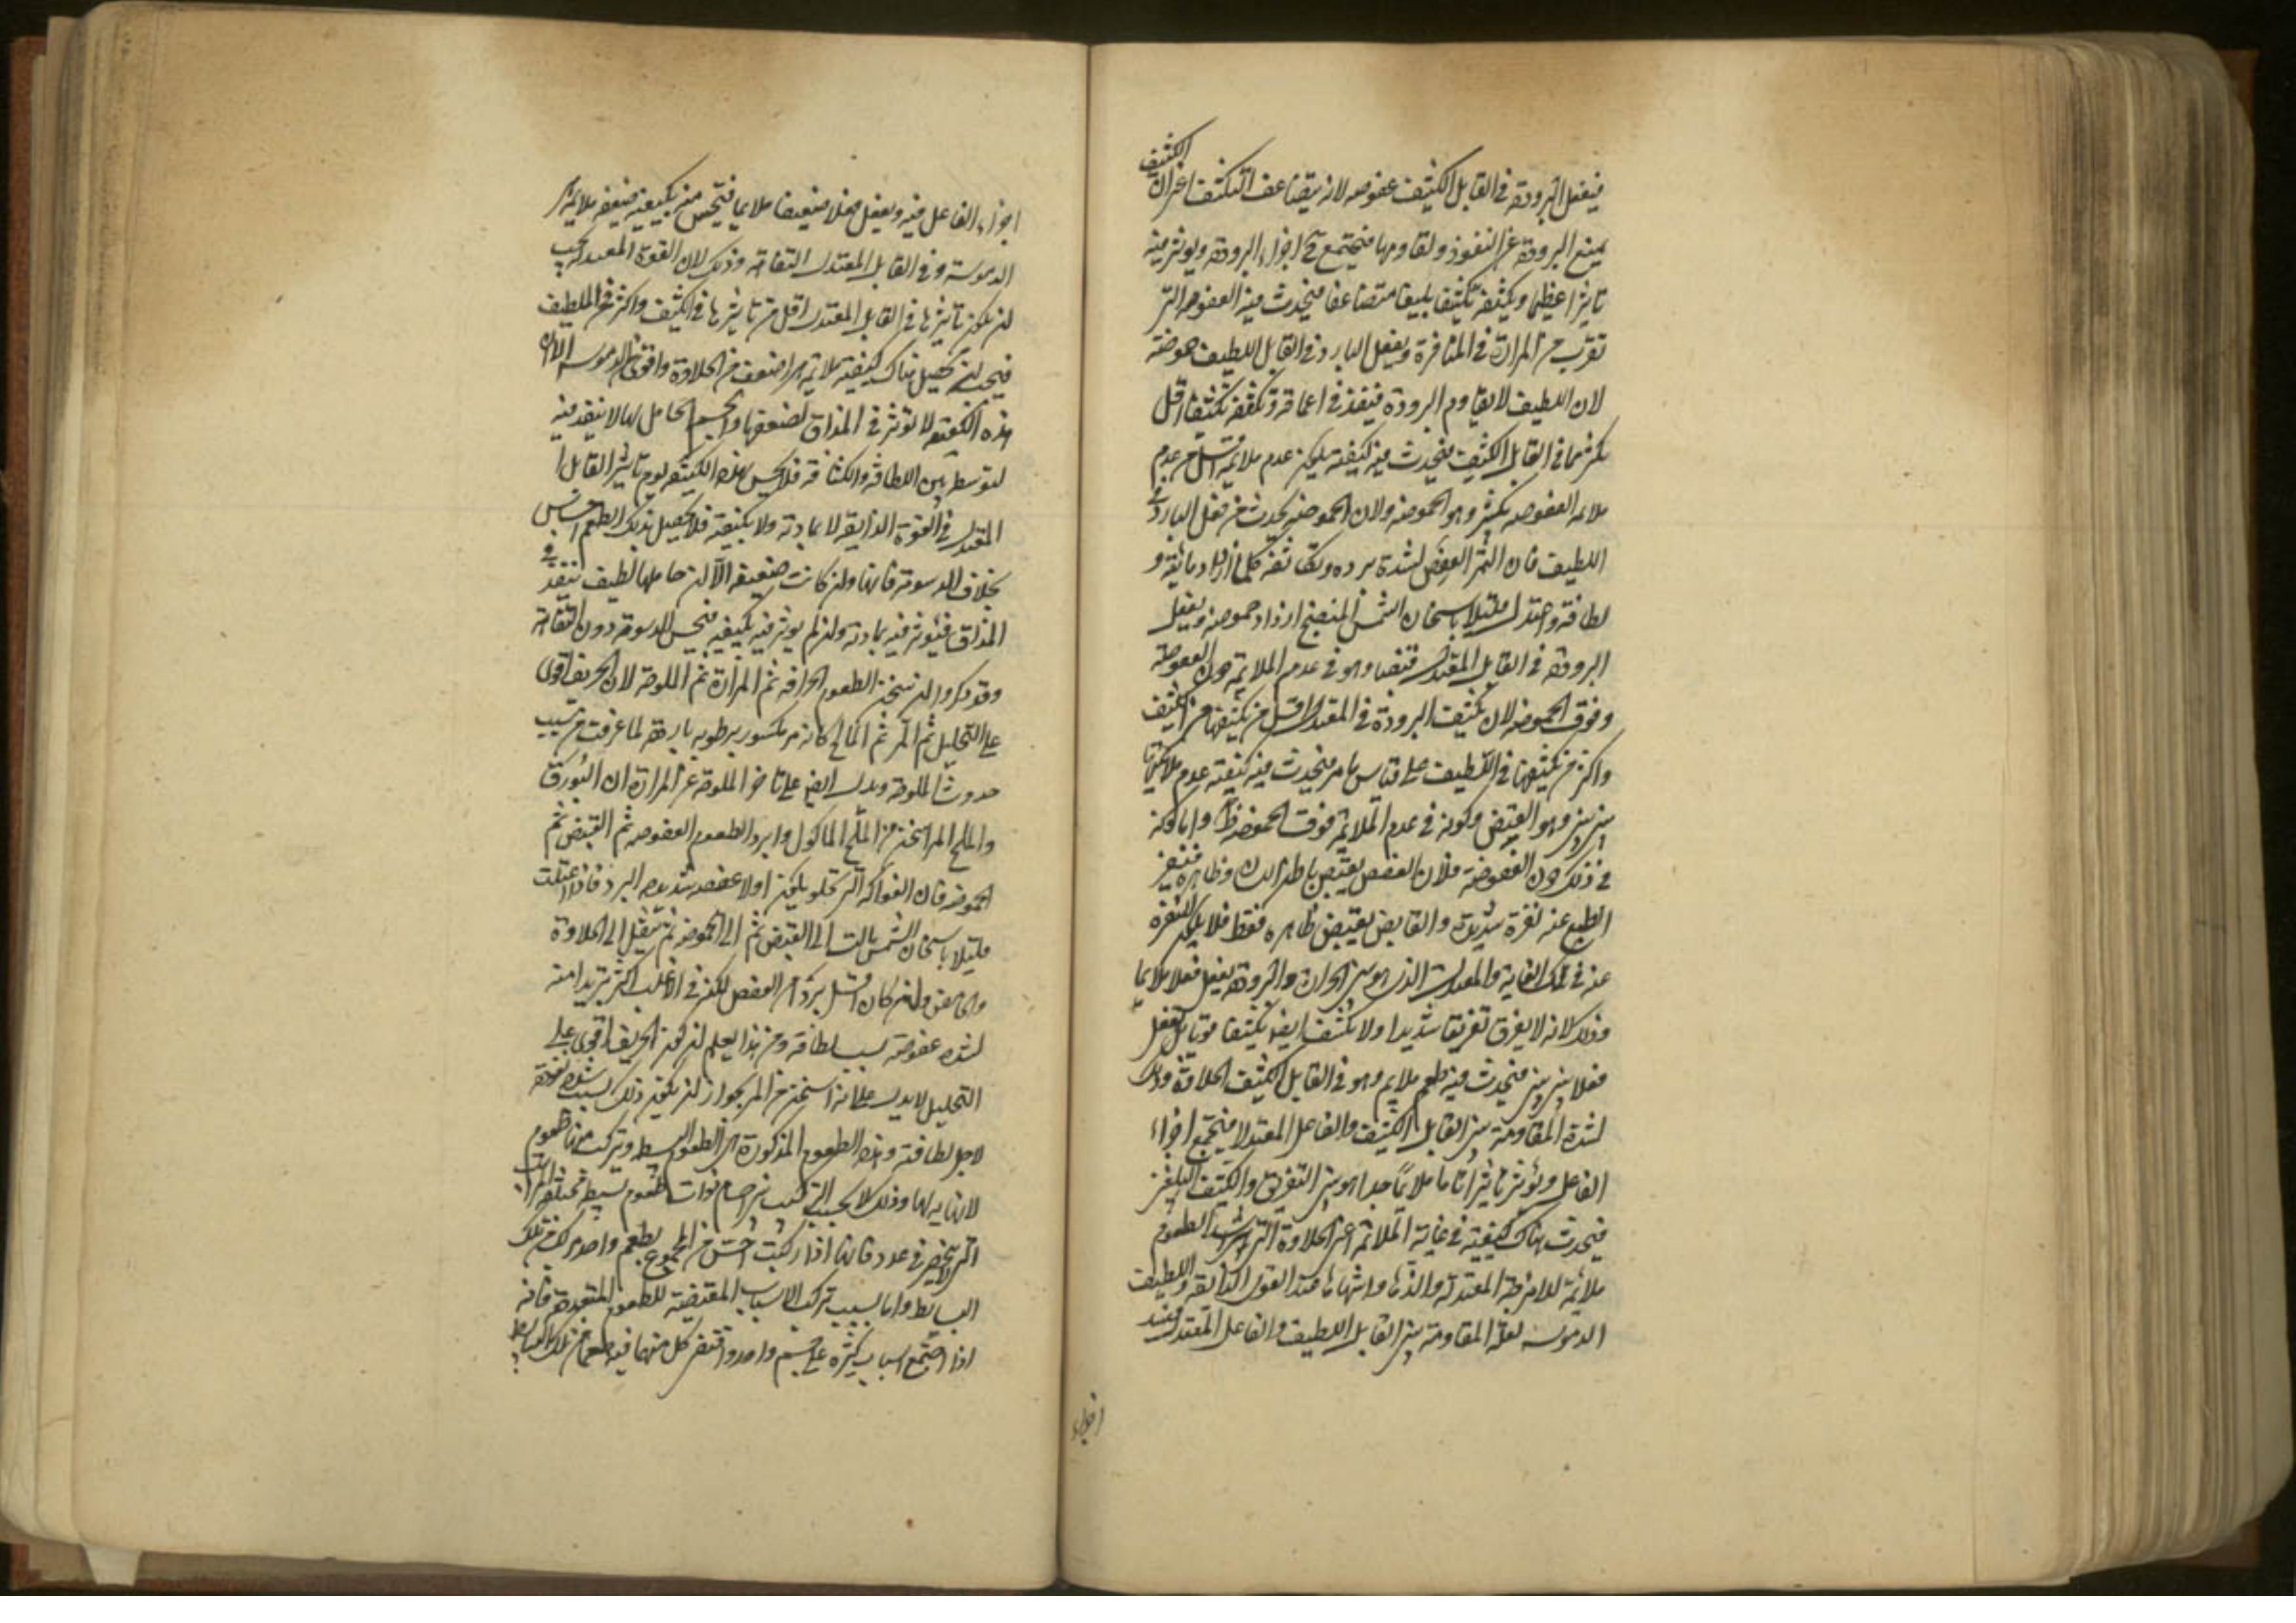 الكثيف
فيفعل البرودة في القابل الكثيف عفوصة لانه يتضاعف التكثف اعني ان
يمنع البرودة عن النفوذ ويقاومها فيجتمع اجزاء البرودة ويؤثر فيه
تاثيرا عظيما ويكثفه تكثيفا بليغا متضاعفا فيحدث فيه العفوصة التي
تقرب من المرارة في المنافرة ويفعل البارد في القابل اللطيف حموضة
لان اللطيف لا يقاوم البرودة فينفذ في اعماقه وتكثفه تكثيفا اقل
بكثير مما في القابل الكثيف فيحدث فيه كيفية يكون عدم ملائمته اقل من عدم
ملائمة العفوصة بكثير وهو الحموضة ولان الحموضة يحدث من فعل البارد في
اللطيف فان الثمر العفص لشدة برده وكثافته كلما ازداد مائية و
لطافة واعتدل قليلا باسخان الشمس المنضج ازداد حموضة ويفعل
البرودة في القابل المعتدل قبضا وهو في عدم الملائمة دون العفوصة
وفوق الحموضة لان تكثيف البرودة في المعتدل اقل من تكثيفها في الكثيف
واكثر من تكثيفها في اللطيف على قياس ما مر فيحدث فيه كيفية عدم ملائمتها
بين بين وهو القبض وكونه في عدم الملائمة فوق الحموضة ظ واما كونه
في ذلك دون العفوصة فلان العفص يقبض باطن اللسان وظاهره فينفر
الطبع عنه نفرة شديدة والقابض يقبض ظاهره فقط فلا يكون النفرة
عنه في تلك الغاية والمعتدل الذي هو بين الحرارة والبرودة يفعل فعلا ملائما
وذلك لانه لا يفرق تفريقا شديدا ولا يكثف ايضا تكثيفا قويا بل يفعل
فعلا بين بين فيحدث فيه طعم ملائم وهو في القابل الكثيف الحلاوة وذلك
لشدة المقاومة بين القابل الكثيف والفاعل المعتدل فيجتمع اجزاء
الفاعل ويؤثر تاثيرا تاما ملائما جدا هو بين التفريق والتكثيف البليغين
فيحدث هناك كيفية في غاية الملائمة اعني الحلاوة التي هي اشد الطعوم
ملائمة للامزجة المعتدلة والذها واشهاها عند القوة الذائقة وفي اللطيف
الدسومة لقلة المقاومة بين القابل اللطيف والفاعل المعتدل فينفذ
اجزاء
اجزاء الفاعل فيه ويفعل فعلا ضعيفا ملائما فيحس منه بكيفية ضعيفة ملائمة هي
الدسومة وفي القابل المعتدل التفاهة وذلك لان القوة المعتدلة يجب
ان يكون تاثيرها في القابل المعتدل اقل من تاثيرها في الكثيف واكثر من اللطيف
فيجب ان يحصل هناك كيفية ملائمة هي اضعف من الحلاوة واقوى من الدسومة الا ان
هذه الكيفية لا تؤثر في المذاق لضعفها والجسم الحامل لها لا ينفذ فيه
لتوسطه بين اللطافة والكثافة فلا يحس بهذه الكيفية لعدم تاثير القابل
المعتدل في القوة الذائقة لا بمادته ولا بكيفيته فلا يحصل بذلك الطعم احساس
بخلاف الدسومة فانها وان كانت ضعيفة الا ان حاملها لطيف ينفذ في
المذاق فيؤثر فيه بمادته وان لم يؤثر فيه بكيفيته فيحس الدسومة دون التفاهة
وقد ذكروا ان اسخن الطعوم الحرافة ثم المرارة ثم الملوحة لان الحريف اقوى
على التحليل ثم المر ثم المالح كانه مر مكسور برطوبة باردة لما عرفت من سبب
حدوث الملوحة ويدل ايضا على تاخر الملوحة عن المرارة ان البورق
والملح المر اسخن من الملح الماكول وابرد الطعوم العفوصة ثم القبض ثم
الحموضة فان الفواكه التي تحلو يكون اولا عفصة شديدة البرد فاذا اعتدلت
قليلا باسخان الشمس مالت الى القبض ثم الى الحموضة ثم تنتقل الى الحلاوة
والحامض وان كان اقل بردا من العفص لكنه في الاغلب اكثر تبريدا منه
لشدة غوصه بسبب لطافته ومن هذا يعلم ان كون الحريف اقوى على
التحليل لا يدل على انه اسخن من المر لجواز ان يكون ذلك بسبب شدة نفوذه
لاجل لطافته وهذه الطعوم المذكورة هي الطعوم البسيطة وتركب منها طعوم
لا نهاية لها وذلك لا بحسب التركيب من اجسام ذوات طعوم بسيطة مختلفة المراتب
التي لا تنحصر في عدد فانها اذا ركبت احس من المجموع بطعم واحد مركب من تلك
البسائط واما بسبب تركب الاسباب المقتضية للطعوم المتعددة فانه
اذا اجتمع اسباب كثيرة على جسم واحد واقتضى كل منها فيه طعما من تلك البسائط